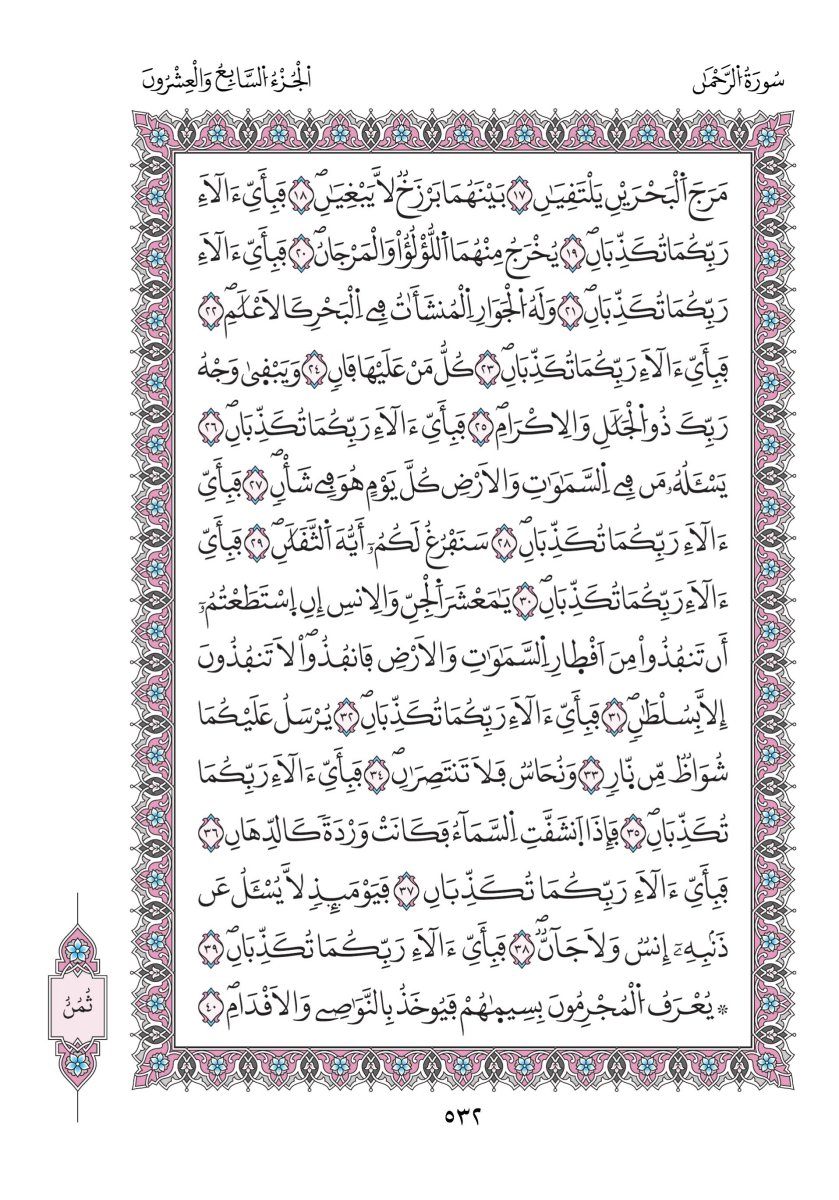 سُورَةُ اُ۬لرَّحْمَٰنِ
اَ۬لْجُزْءُ اُ۬لسَّابِعُ وَالْعِشْرُونَ
مَرَجَ اَ۬لْبَحْرَيْنِ يَلْتَقِيَٰنِ ١٧ بَيْنَهُمَا بَرْزَخٞ لَّا يَبْغِيَٰنِۖ ١٨ فَبِأَيِّ ءَالَآءِ
رَبِّكُمَا تُكَذِّبَانِۖ ١٩ يُخْرَجُ مِنْهُمَا اَ۬للُّؤْلُؤُاْ وَالْمَرْجَانُۖ ٢٠ فَبِأَيِّ ءَالَآءِ
رَبِّكُمَا تُكَذِّبَانِۖ ٢١ وَلَهُ اُ۬لْجَوَارِ اِ۬لْمُنشَـَٔاتُ فِے اِ۬لْبَحْرِ كَالَاعْلَٰمِۖ ٢٢
فَبِأَيِّ ءَالَآءِ رَبِّكُمَا تُكَذِّبَانِۖ ٢٣ كُلُّ مَنْ عَلَيْهَا فَانٖ ٢٤ وَيَبْقَىٰ وَجْهُ
رَبِّكَ ذُو اُ۬لْجَلَٰلِ وَالِاكْرَامِۖ ٢٥ فَبِأَيِّ ءَالَآءِ رَبِّكُمَا تُكَذِّبَانِۖ ٢٦
يَسْـَٔلُهُۥ مَن فِے اِ۬لسَّمَٰوَٰتِ وَالَارْضِ كُلَّ يَوْمٍ هُوَ فِے شَأْنٖۖ ٢٧ فَبِأَيِّ
ءَالَآءِ رَبِّكُمَا تُكَذِّبَانِۖ ٢٨ سَنَفْرُغُ لَكُمُۥٓ أَيُّهَ اَ۬لثَّقَلَٰنِۖ ٢٩ فَبِأَيِّ
ءَالَآءِ رَبِّكُمَا تُكَذِّبَانِۖ ٣٠ يَٰمَعْشَرَ اَ۬لْجِنِّ وَالِانسِ إِنِ اِ۪سْتَطَعْتُمُۥٓ
أَن تَنفُذُواْ مِنَ اَقْطِارِ اِ۬لسَّمَٰوَٰتِ وَالَارْضِ فَانفُذُواْۖ لَا تَنفُذُونَ
إِلَّا بِسُلْطَٰنٖۖ ٣١ فَبِأَيِّ ءَالَآءِ رَبِّكُمَا تُكَذِّبَانِۖ ٣٢ يُرْسَلُ عَلَيْكُمَا
شُوَاظٞ مِّن نّ۪ارٖ ٣٣ وَنُحَاسٞ فَلَا تَنتَصِرَٰنِۖ ٣٤ فَبِأَيِّ ءَالَآءِ رَبِّكُمَا
تُكَذِّبَانِۖ ٣٥ فَإِذَا اَ۪نشَقَّتِ اِ۬لسَّمَآءُ فَكَانَتْ وَرْدَةٗ كَالدِّهَانِ ٣٦
فَبِأَيِّ ءَالَآءِ رَبِّكُمَا تُكَذِّبَانِ ٣٧ فَيَوْمَئِذٖ لَّا يُسْـَٔلُ عَن
ذَنۢبِهِۦٓ إِنسٞ وَلَا جَآنّٞۖ ٣٨ فَبِأَيِّ ءَالَآءِ رَبِّكُمَا تُكَذِّبَانِۖ ٣٩
۞ يُعْرَفُ اُ۬لْمُجْرِمُونَ بِسِيمٰ۪هُمْ فَيُوخَذُ بِالنَّوَٰصِے وَالَاقْدَامِۖ ٤٠
ثُمُنُ
٥٣٢